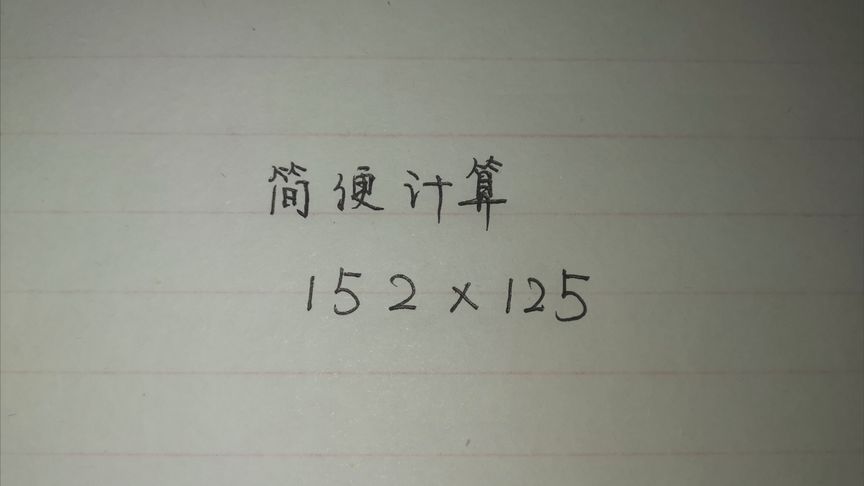 简便计算
152×125